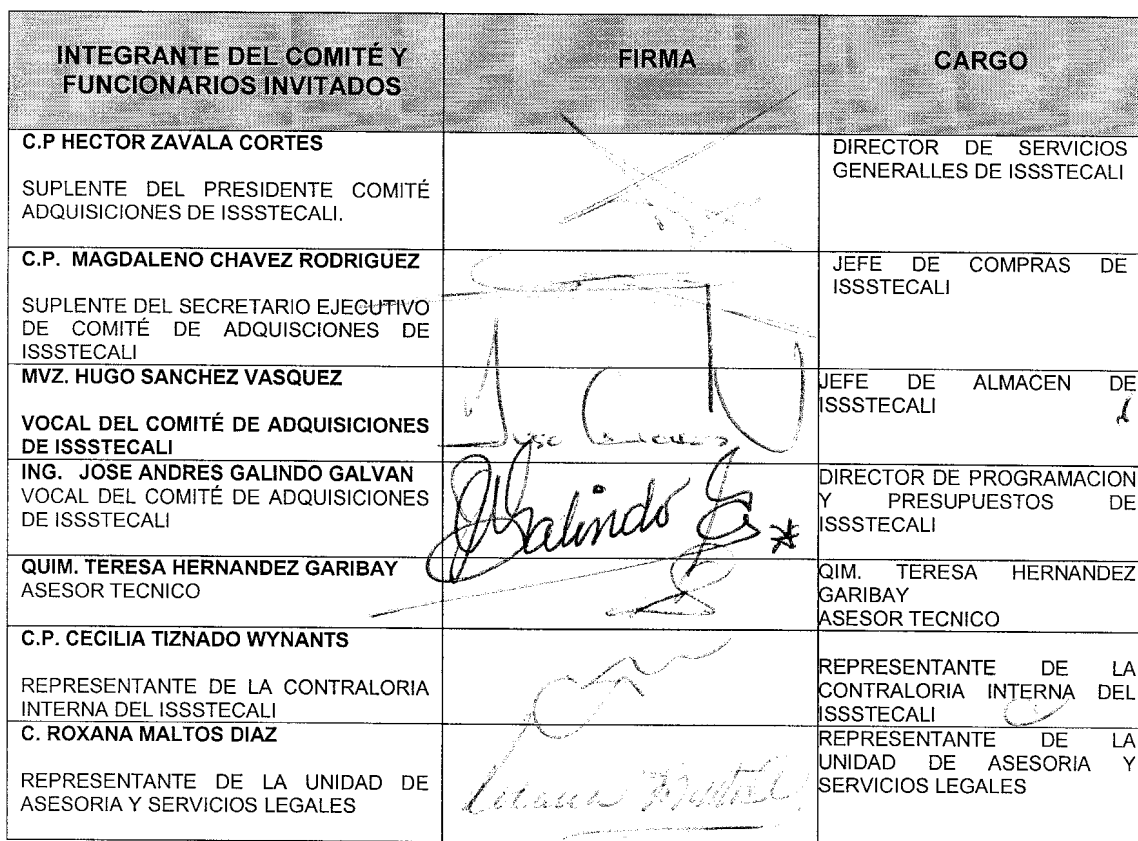 INTEGRANTE DEL COMITÉ Y
FUNCIONARIOS INVITADOS
FIRMA
CARGO
C.P HECTOR ZAVALA CORTES
SUPLENTE DEL PRESIDENTE COMITÉ
ADQUISICIONES DE ISSSTECALI.
DIRECTOR DE SERVICIOS
GENERALLES DE ISSSTECALI
C.P. MAGDALENO CHAVEZ RODRIGUEZ
SUPLENTE DEL SECRETARIO EJECUTIVO
DE COMITÉ DE ADQUISCIONES DE
ISSSTECALI
JEFE DE COMPRAS DE
ISSSTECALI
MVZ. HUGO SANCHEZ VASQUEZ
VOCAL DEL COMITÉ DE ADQUISICIONES
DE ISSSTECALI
JEFE DE ALMACEN DE
ISSSTECALI
ING. JOSE ANDRES GALINDO GALVAN
VOCAL DEL COMITÉ DE ADQUISICIONES
DE ISSSTECALI
Galindo G
DIRECTOR DE PROGRAMACION
Y PRESUPUESTOS DE
ISSSTECALI
QUIM. TERESA HERNANDEZ GARIBAY
ASESOR TECNICO
QIM. TERESA HERNANDEZ
GARIBAY
ASESOR TECNICO
C.P. CECILIA TIZNADO WYNANTS
REPRESENTANTE DE LA CONTRALORIA
INTERNA DEL ISSSTECALI
REPRESENTANTE DE LA
CONTRALORIA INTERNA DEL
ISSSTECALI
C. ROXANA MALTOS DIAZ
REPRESENTANTE DE LA UNIDAD DE
ASESORIA Y SERVICIOS LEGALES
REPRESENTANTE DE LA
UNIDAD DE ASESORIA Y
SERVICIOS LEGALES